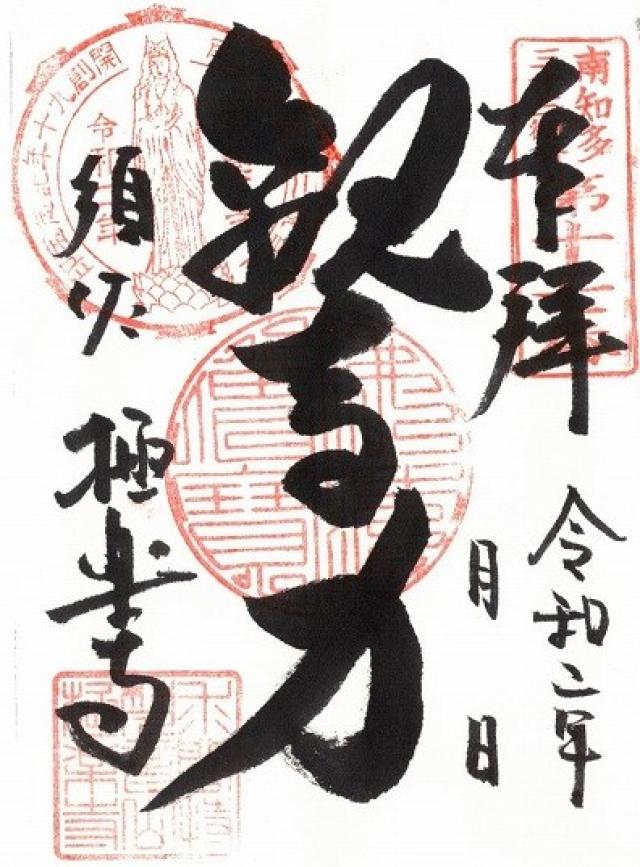 奉拝
令和二年
月 日
観音力
須佐
極楽寺
南知多第十
開創九十年
令和二年
佛法僧寶